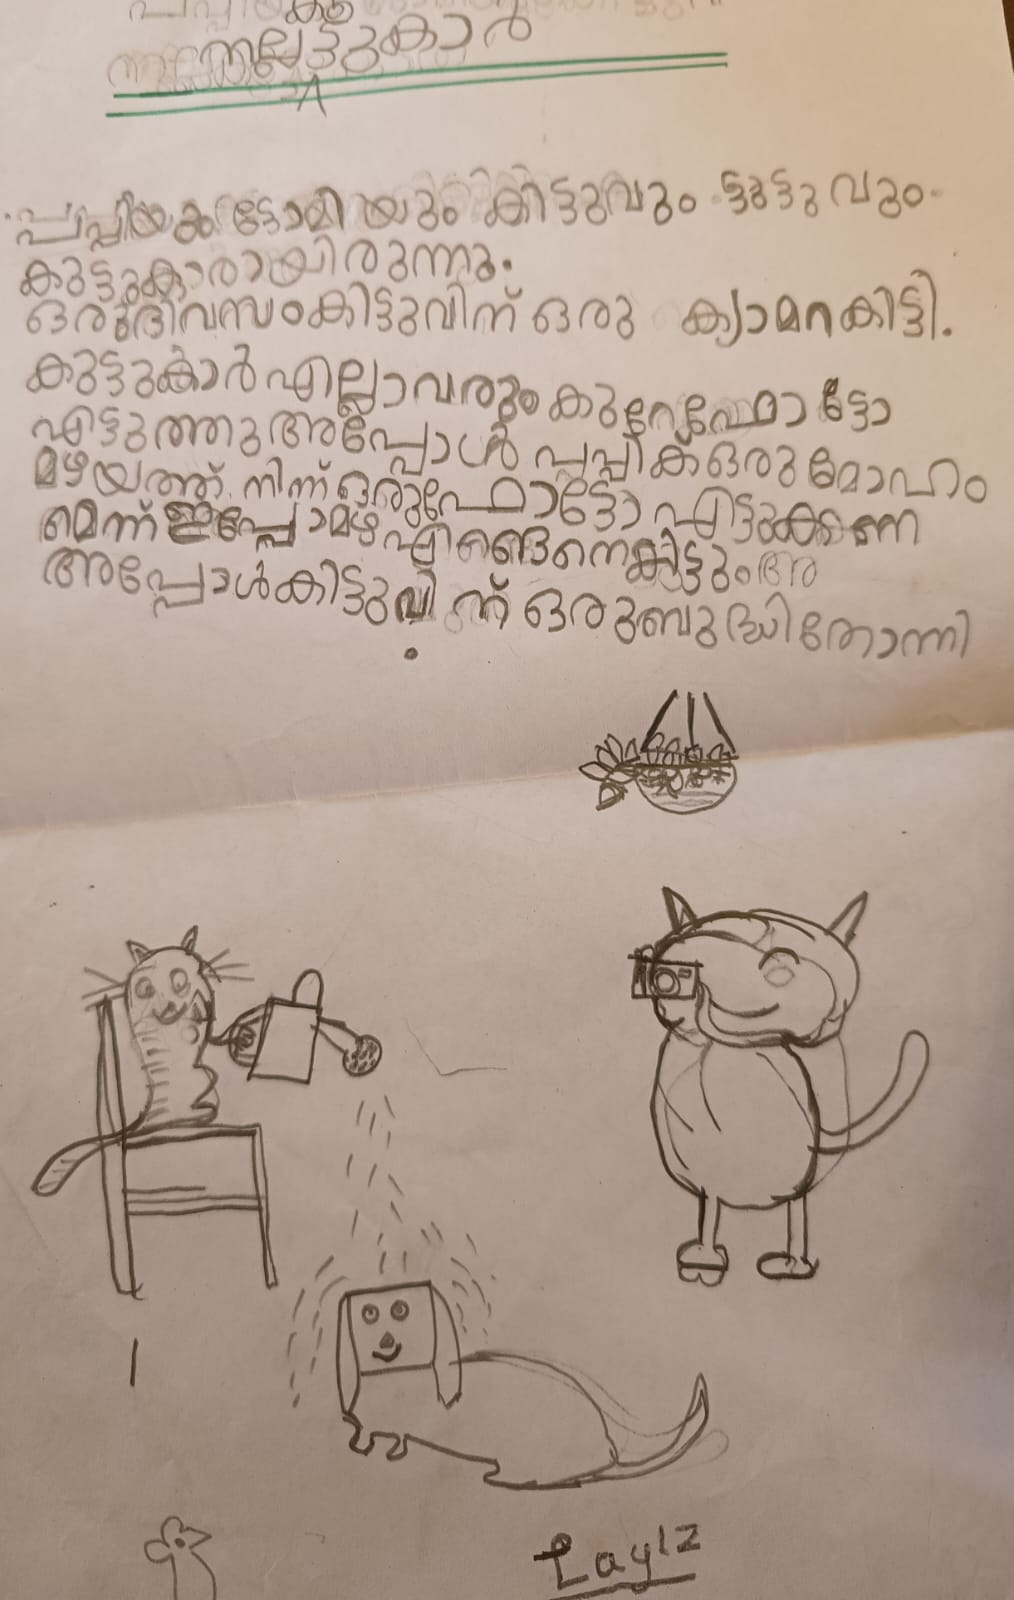 നല്ലകൂട്ടുകാർ
പപ്പിയും ടോമിയും കിട്ടുവും ട്ടുട്ടുവും
കുട്ടുകാരായിരുന്നു.
ഒരുദിവസംകിട്ടുവിന് ഒരു ക്യാമറകിട്ടി.
കുട്ടുകാർ എല്ലാവരും കുറേഫോട്ടോ
എട്ടുത്തുഅപ്പോൾ പപ്പിക്ക്ഒരുമോഹം
മഴയത്ത് നിന്ന് ഒരുഫോട്ടോ എട്ടുക്കണ
മെന്ന് ഇപ്പോമഴ എങ്ങെനെകിട്ടും അ
അപ്പോൾകിട്ടുവിന്ന് ഒരുബുദ്ധിതോന്നി
Laylz